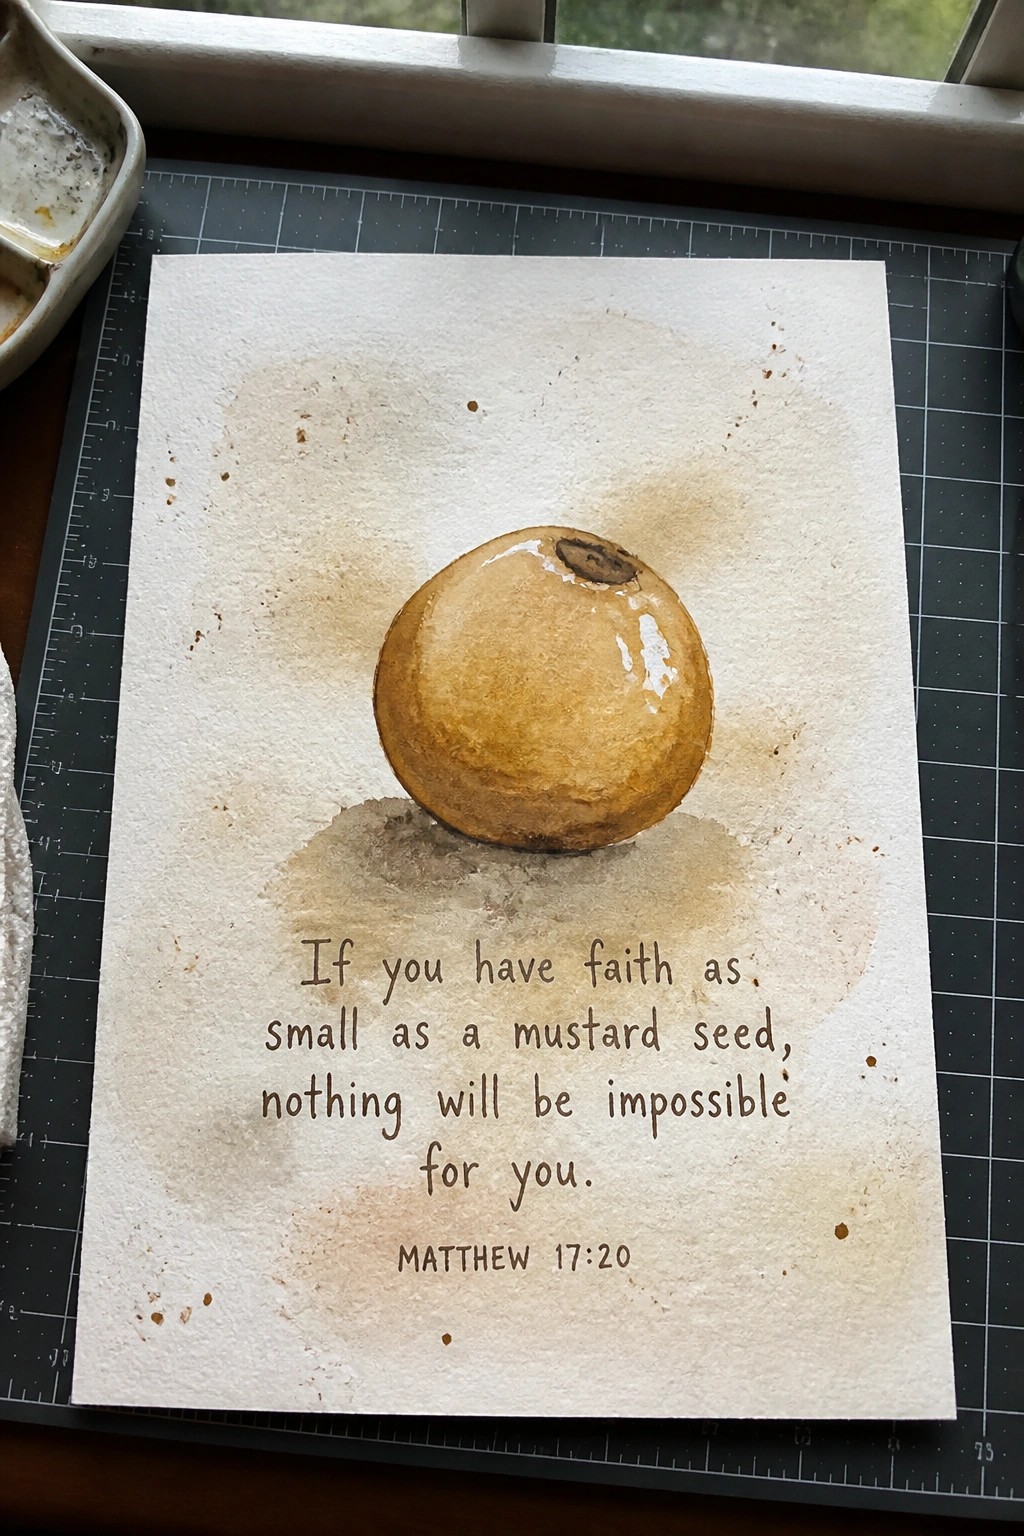 If you have faith as
small as a mustard seed,
nothing will be impossible
for you.
MATTHEW 17:20